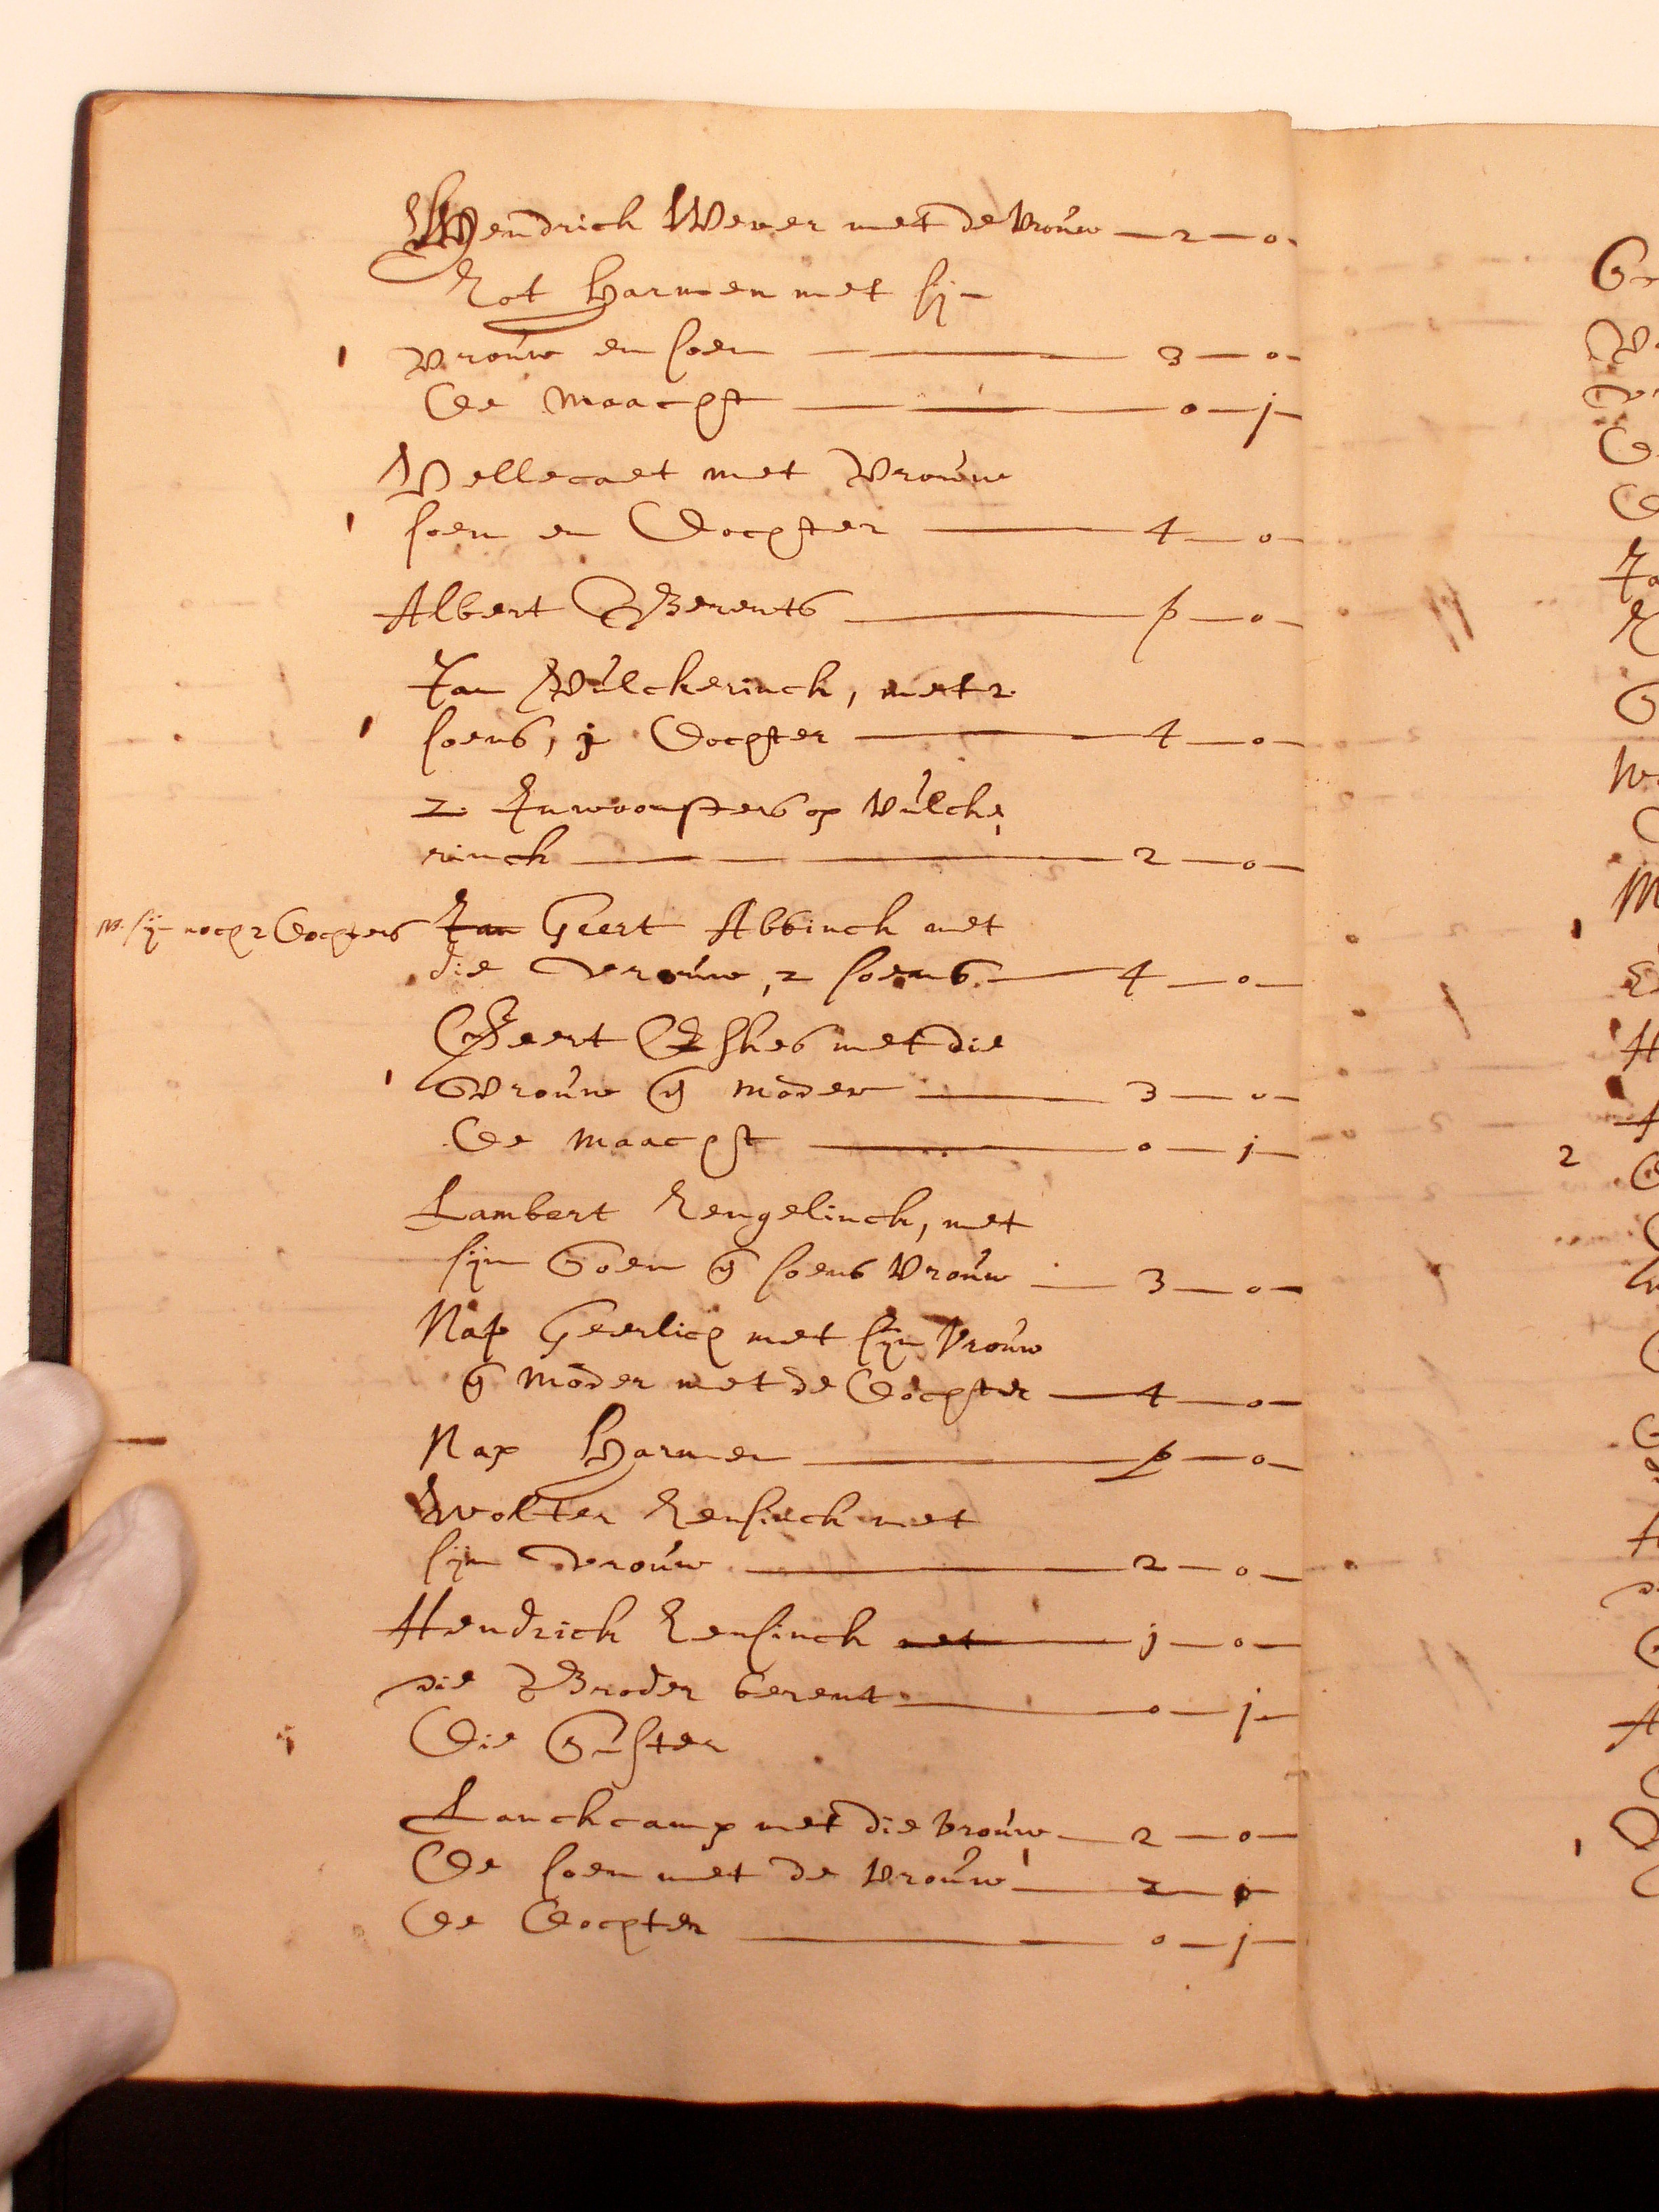 Hendrich Wever met de Vrouw — 2 — 0
Rot Harmen met sijn
ı vrouw en soen — 3 — 0
De maacht — 0 — j
Vellecaet met Vrouw
ı soen en Dochter — 4 — 0
Albert Berents — j — 0
Jan Vulcherinch, met 2
ı soens, j Dochter — 4 — 0
2 Inwoonsters op Vulche,
rinch — 2 — 0
sijn noch 2 Dochters Jan Geert Abbinch met
die vrouw, 2 soens — 4 — 0
Geert met die
ı vrouw moder — 3 — 0
De maacht — 0 — j
Lambert Rengelinch, met
sijn Soen soens Vrouw — 3 — 0
Nap Geerlich met sijn Vrouw
moder met de Dochter — 4 — 0
Nap Harmen — j — 0
Wolter Rensinch met
sijn vrouw — 2 — 0
Hendrich Rensinch met — j — 0
die Broder berent — 0 — j
Die Suster
Lanchcamp met die vrouw — 2 — 0
De soen met de vrouw — 2 — 0
De Dochter — 0 — j
2